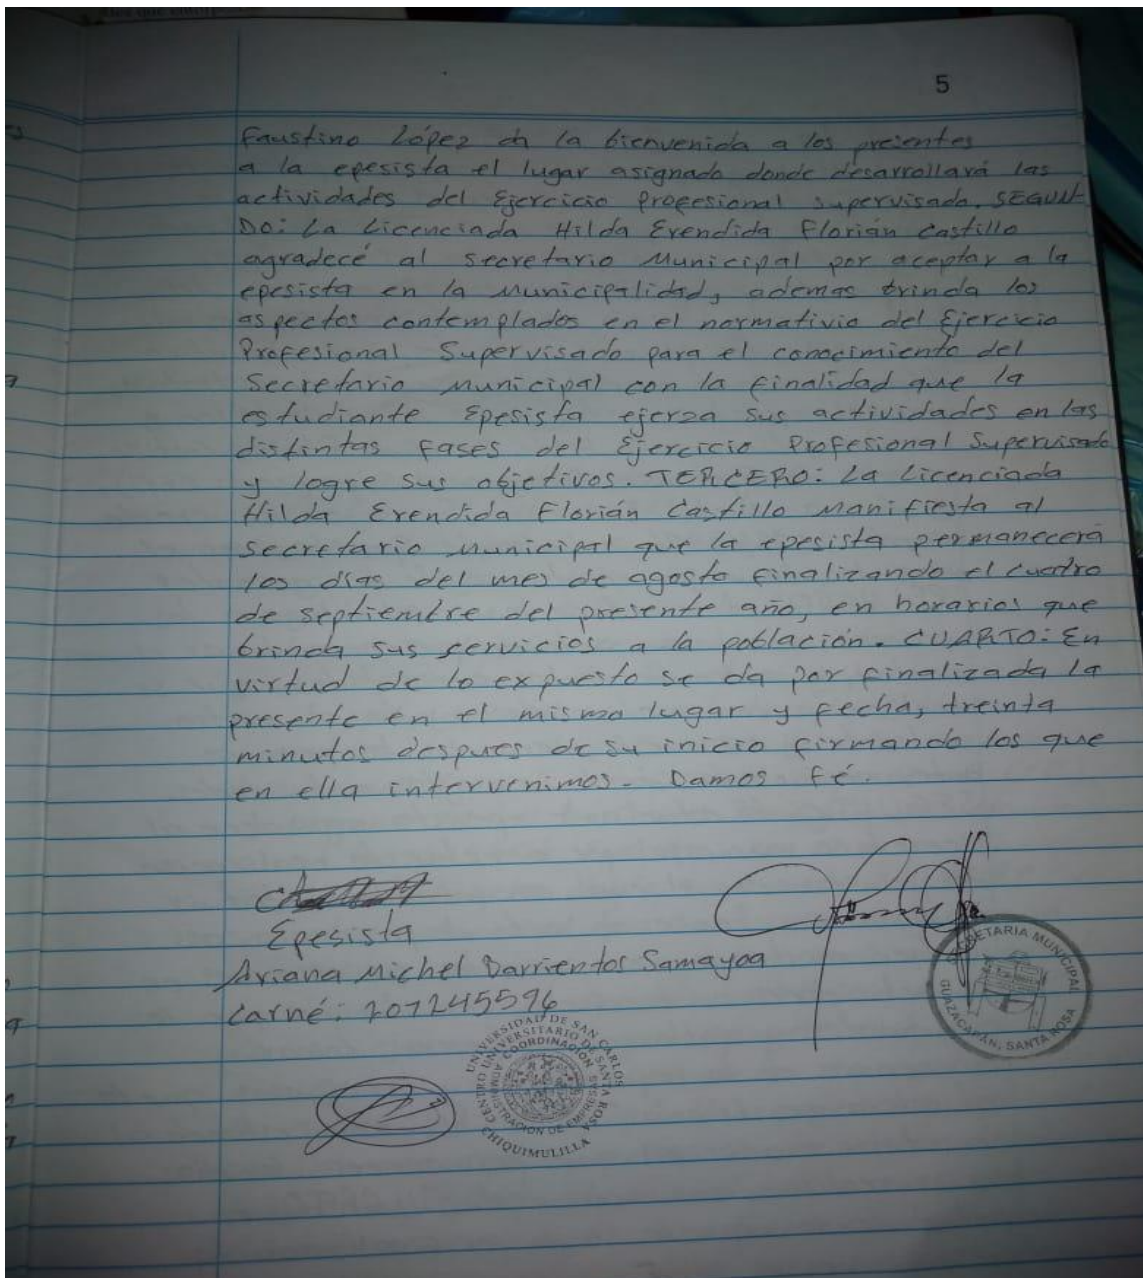 5
Faustino López da la bienvenida a los presentes
a la epesista el lugar asignado donde desarrollará las
actividades del Ejercicio Profesional supervisado. SEGUN-
DO: La Licenciada Hilda Erendida Florián Castillo
agradecé al secretario Municipal por aceptar a la
epesista en la Municipalidad, ademas brinda los
aspectos contemplados en el normativio del Ejercicio
Profesional Supervisado para el conocimiento del
Secretario Municipal con la finalidad que la
estudiante Epesista ejerza sus actividades en las
distintas fases del Ejercicio Profesional Supervisado
y logre sus objetivos. TERCERO: La Licenciada
Hilda Erendida Florián Castillo Manifiesta al
secretario Municipal que la epesista permanecerá
los dias del mes de agosto finalizando el cuatro
de septiembre del presente año, en horarios que
brinda sus servicios a la población. CUARTO: En
virtud de lo expuesto se da por finalizada la
presente en el mismo lugar y fecha, treinta
minutos despues de su inicio firmando los que
en ella intervenimos. Damos fé.
Epesista
Ariana Michel Barrientos Samayoa
carné:
SECRETARIA MUNICIPAL
GUAZACAPÁN, SANTA ROSA
UNIVERSIDAD DE SAN CARLOS
CENTRO UNIVERSITARIO DE SANTA ROSA
COORDINACIÓN
ADMINISTRACION DE EMPRESAS
CHIQUIMULILLA